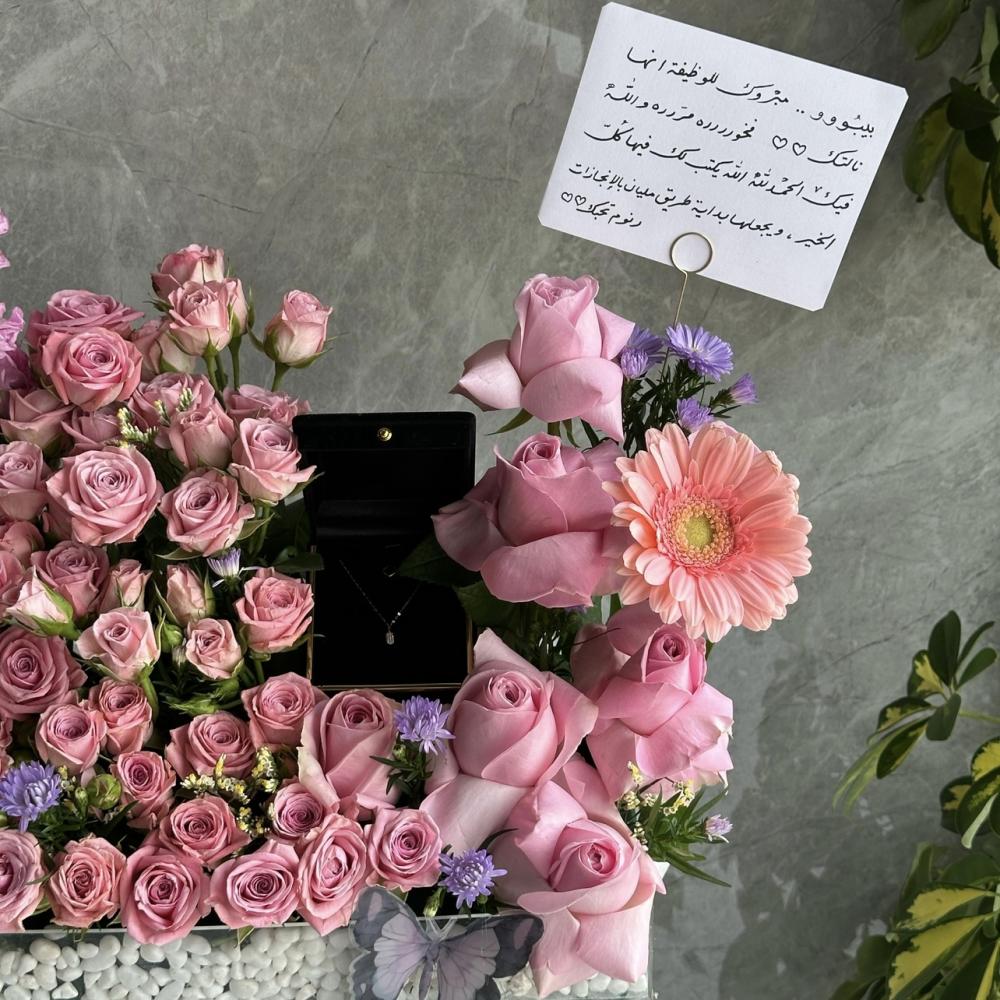 بيبــووو .. مبروك للوظيفة انها
نالتك ♡♡ فخوررررره مرّرره والله
فيك الحمدلله الله يكتب لك فيها كل
الخير ، ويجعلها بداية طريق مليان بالإنجازات
دنوم تحبك ♡♡